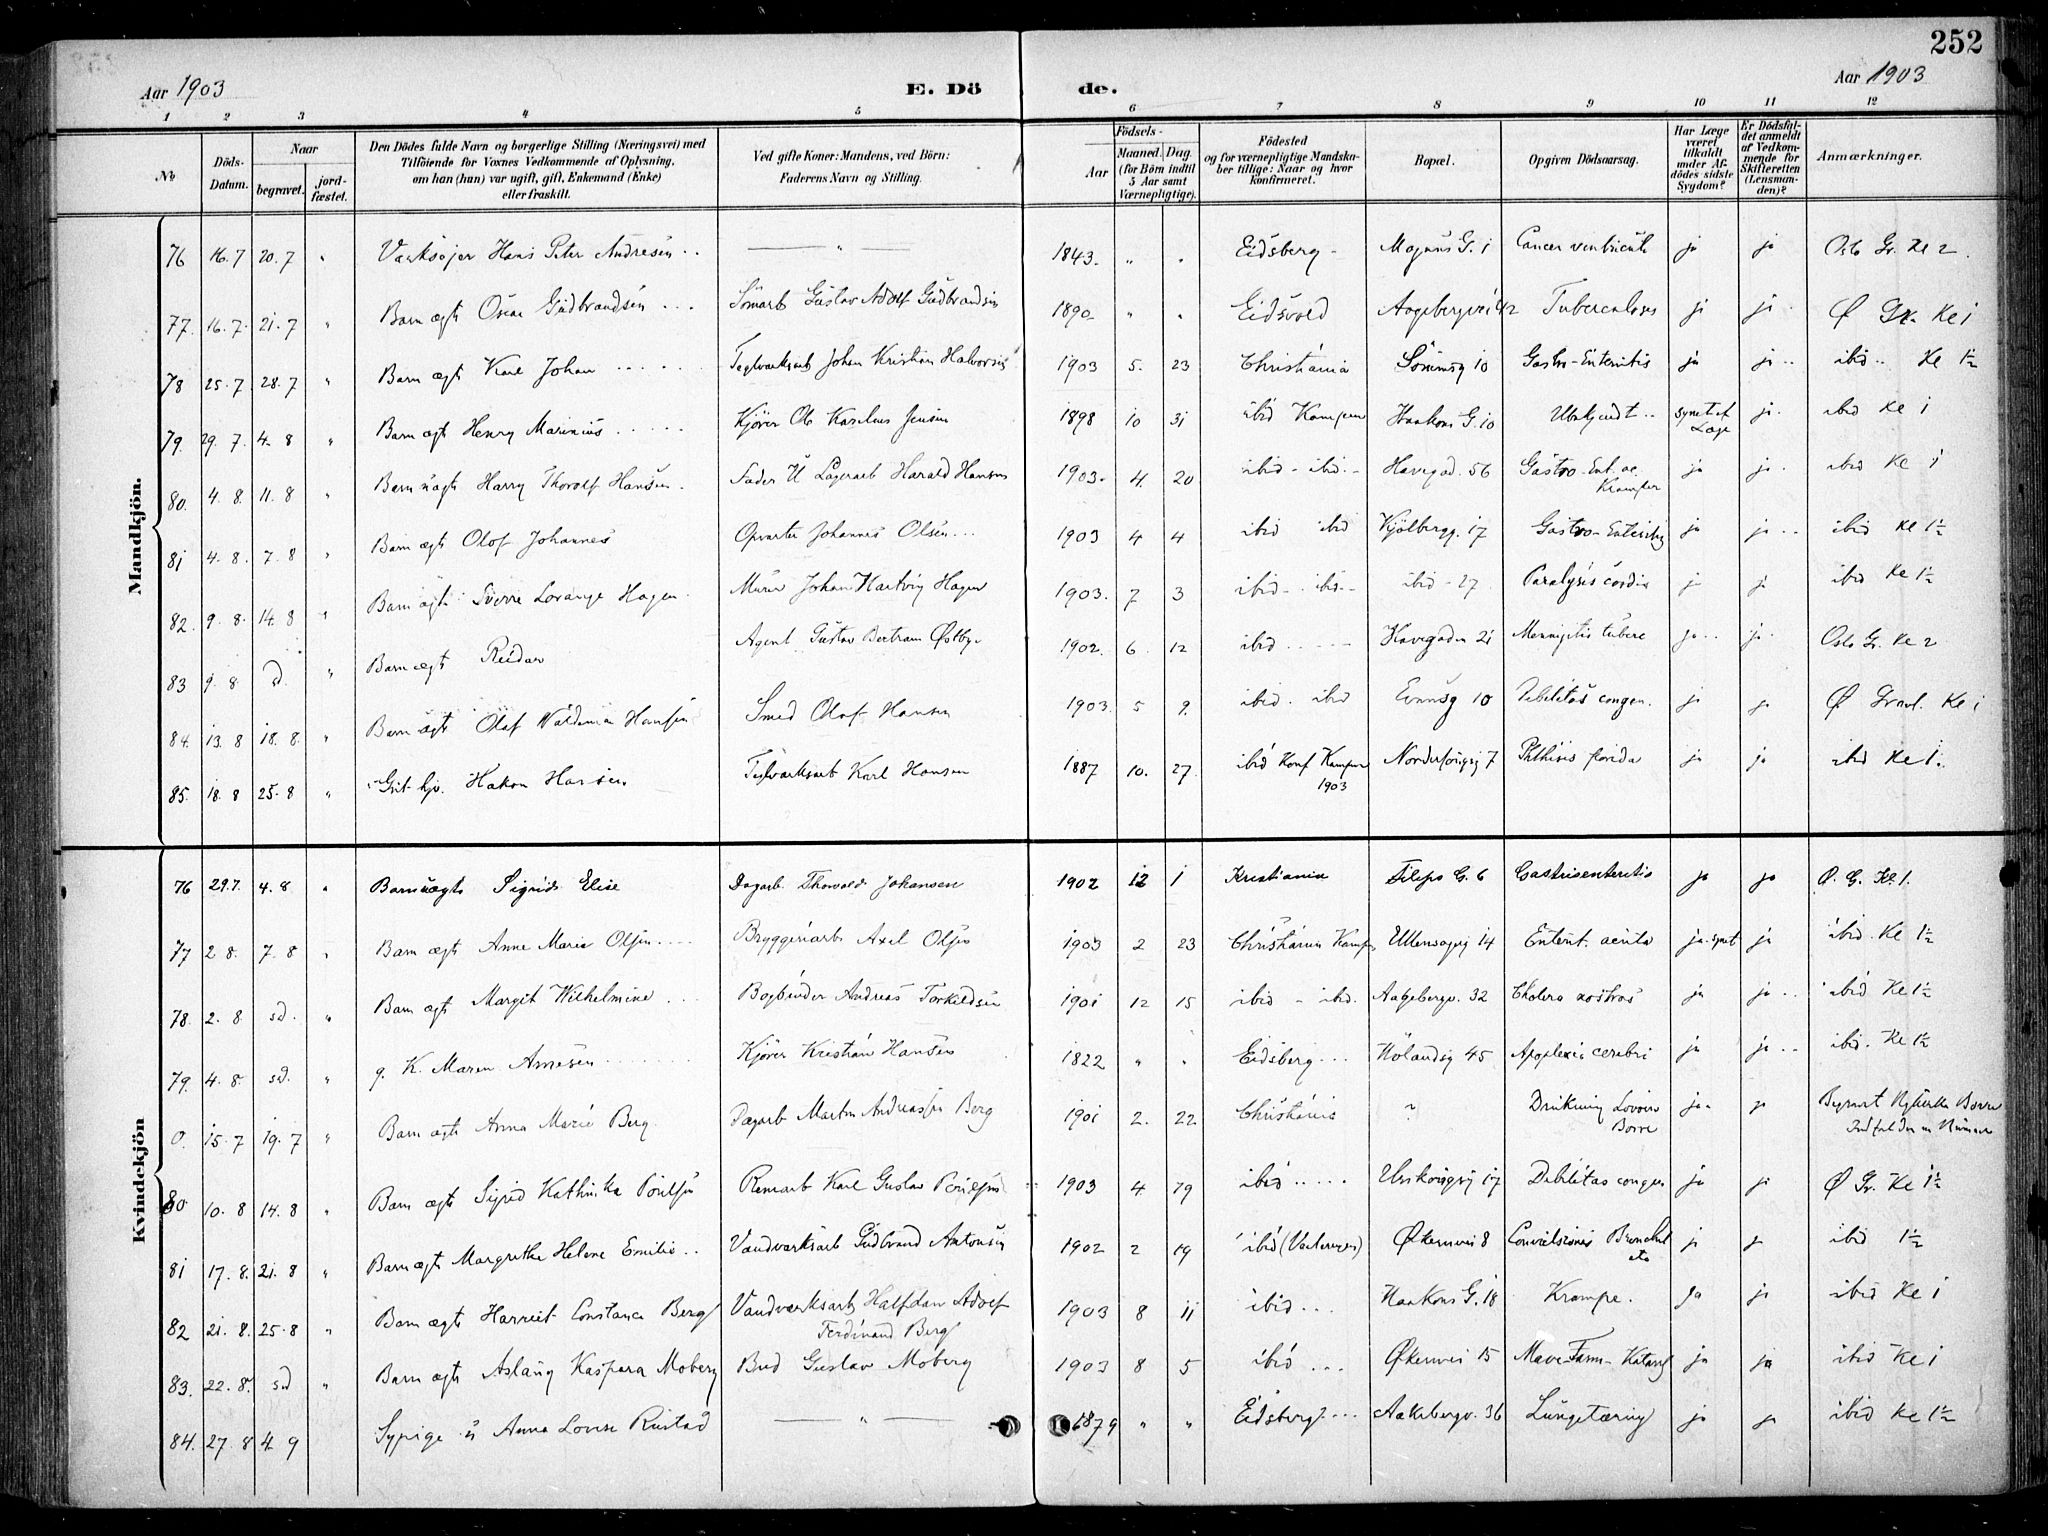 252
Aar 1903 E. Dö de. Aar 1903
1 2 3 4 5 6 7 8 9 10 11 12
No. Döds-Datum. Naar begravet. jordfæstet. Den Dödes fulde Navn og borgerlige Stilling (Næringsvei) med Tilföiende for Voxnes Vedkommende af Oplysning, om han (hun) var ugift, gift, Enkemand (Enke) eller fraskilt. Ved gifte Koner: Mandens, ved Börn: Faderens Navn og Stilling. Födsels- Aar Maaned. Dag (for Börn indtil 5 Aar samt Værnepligtige). Födested og for værnepligtige Mandskaber tillige: Naar og hvor konfirmeret. Bopæl. Opgiven Dödsaarsag. Har Læge været tilkaldt under Afdödes sidste Sygdom? Er Dödsfaldet anmeldt af Vedkommende for Skifteretten (Lensmanden)? Anmærkninger.
Mandkjön.
76 16.7 20.7 " Hans Peter Andresen .. — " — 1843. " " Eidsberg - Magnus G. 1 Cancer ventriculi ja ja Oslo Gr. Kl 2.
77. 16.7. 21.7 " Barn ægte Oscar Gudbrandsen ... Gustav Adolf Gudbrandsen 1890 " " Eidsvold 42 Tuberculosis ja ja. Ø Gr. Kl 1
78 25.7 28.7 " Barn ægt Karl Johan ..... Teglværksarb Johan Kristian Halvorsen 1903 5. 23 Christiania 10 Gastro-Enteritis ja ja.. ibid.. Kl 1½
79. 29.7. 4.8 " Barn ægt Henry Marinius ..... Kjører Ole Karelius Jensen 1898 10 31 ibid Kampen Haakons G. 10 Ubekjendt .. synet af Læge ja. ibid Kl 1
80. 4.8. 11.8 " Barn uægt Harry Thorolf Hansen. Fader U Lagerarb Harald Hansen 1903. 4. 20 ibid - ibid. - Havegad. 56 Gastro-Ent. ac. Kramper ja ja. ibid Kl 1
81 4.8. 7.8 " Barn ægt Olof Johannes Opvarter Johannes Olsen ... 1903 4 4 ibid ibid Kjölbergg. 17 Gastro-Enteritis ja ja.. ibid Kl 1½
82. 9.8. 14.8 " Barn ægte Sverre Lorange Hagen. Murer Johan Hartvig Hagen 1903. 7 3 ibid - ibid - ibid - 27 Paralysis cordis ja ja ibid Kl 1½
83 9.8 sd. " Barn ægt Reidar Agent Gustav Bertram Østbye 1902. 6. 12 ibid .... Havegaden 21 Meningitis tuberc ja.. ja. Oslo Gr. Kl 2
84. 13.8 18.8. " Barn ægt Olaf Valdemar Hansen Smed Olaf Hansen 1903. 5 9. ibid. ibid 10 Debilitas congen. ja ja Ø Gravl. Kl 1
85. 18.8 25.8 " Hakon Hansen Teglværksarb Karl Hansen 1887 10. 27. ibid Konf Kampen 1903 7 Phthisis florida ja ja ibid Kl 1.
Kvindekjön
76 29.7. 4.8 " Barn uægte Sigrid Elise Dagarb. Thorvald Johansen 1902 12 1 Kristiania Filips G. 6 Gastrisenteritis ja ja Ø. G. Kl. 1.
77 2.8. 7.8 " Barn ægt Anne Marie Olsen .... Bryggeriarb Axel Olsen 1903 2 23 Christiania Kampen Ullensagrg 14 Enterit. acuta ja. synet ja ibid. Kl 1½
78. 2.8 sd. " Barn ægt Margit Wilhelmine ... Bogbinder Andreas Torkildsen 1901 12 15 ibid - ibd. Aagebergv. 32 Cholera nostras ja ja.. ibid Kl 1½
79. 4.8. sd. " g. K. Maren Arnesen ...... Kjører Kristian Hansen 1822 " " Eidsberg ... Hölandsg 45 Apoplexia cerebri ja ja.. ibid. Kl 1½
0. 15.7 19.7 " Barn ægt Anna Marie Berg. Dagarb Martin Andreassen Berg 1901 2. 22 Christiania ? Drukning Borre ja. ja Begravet Borre
80 10.8 14.8 " Barn ægt Sigrid Kathinka Karl Gustav 1903 4 19 ibid ..... 17 Debilitas congen ja ja Ø Gr. Kl 1½
81 17.8. 21.8 " Barn ægt Margrethe Helene Emilie .. Vandværksarb Gudbrand Antonsen 1902 2 19 ibid (Vaalerengen) Økernvei 8 Convulsiones ja ja ibid 1½
82 21.8. 25.8 " Barn ægt Harriet Constance Berg Vandværksarb Halfdan Adolf Ferdinand Berg 1903 8 11 ibid ... Haakons G. 18 Krampe. ja ja ibid Kl 1
83. 22.8. sd " Barn ægte Aslaug Kaspara Moberg Bud Gustav Moberg 1903 8 5 ibid ... Økernvei 15 Mave-Tarm-Katarrh ja ja ibid Kl 1
84. 27.8 4.9 Sypige u Anna Lovise Rustad — " — 1879 " " Eidsberg ... Aakebergv. 36 Lungetæring ja ja ibid Kl 1½